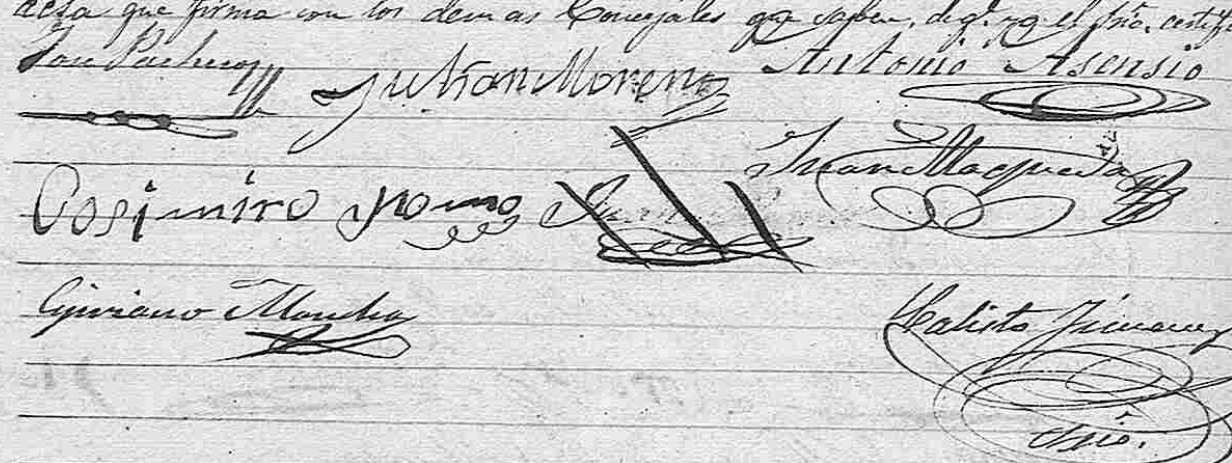 acta que firma con los demas Concejales que saben, de qe. yo el Srio. certifi
José Pacheco Julian Moreno Antonio Asensio
Casimiro Romo Juan Maqueda
Cipriano Mancha Calisto Jimenez
Srio.